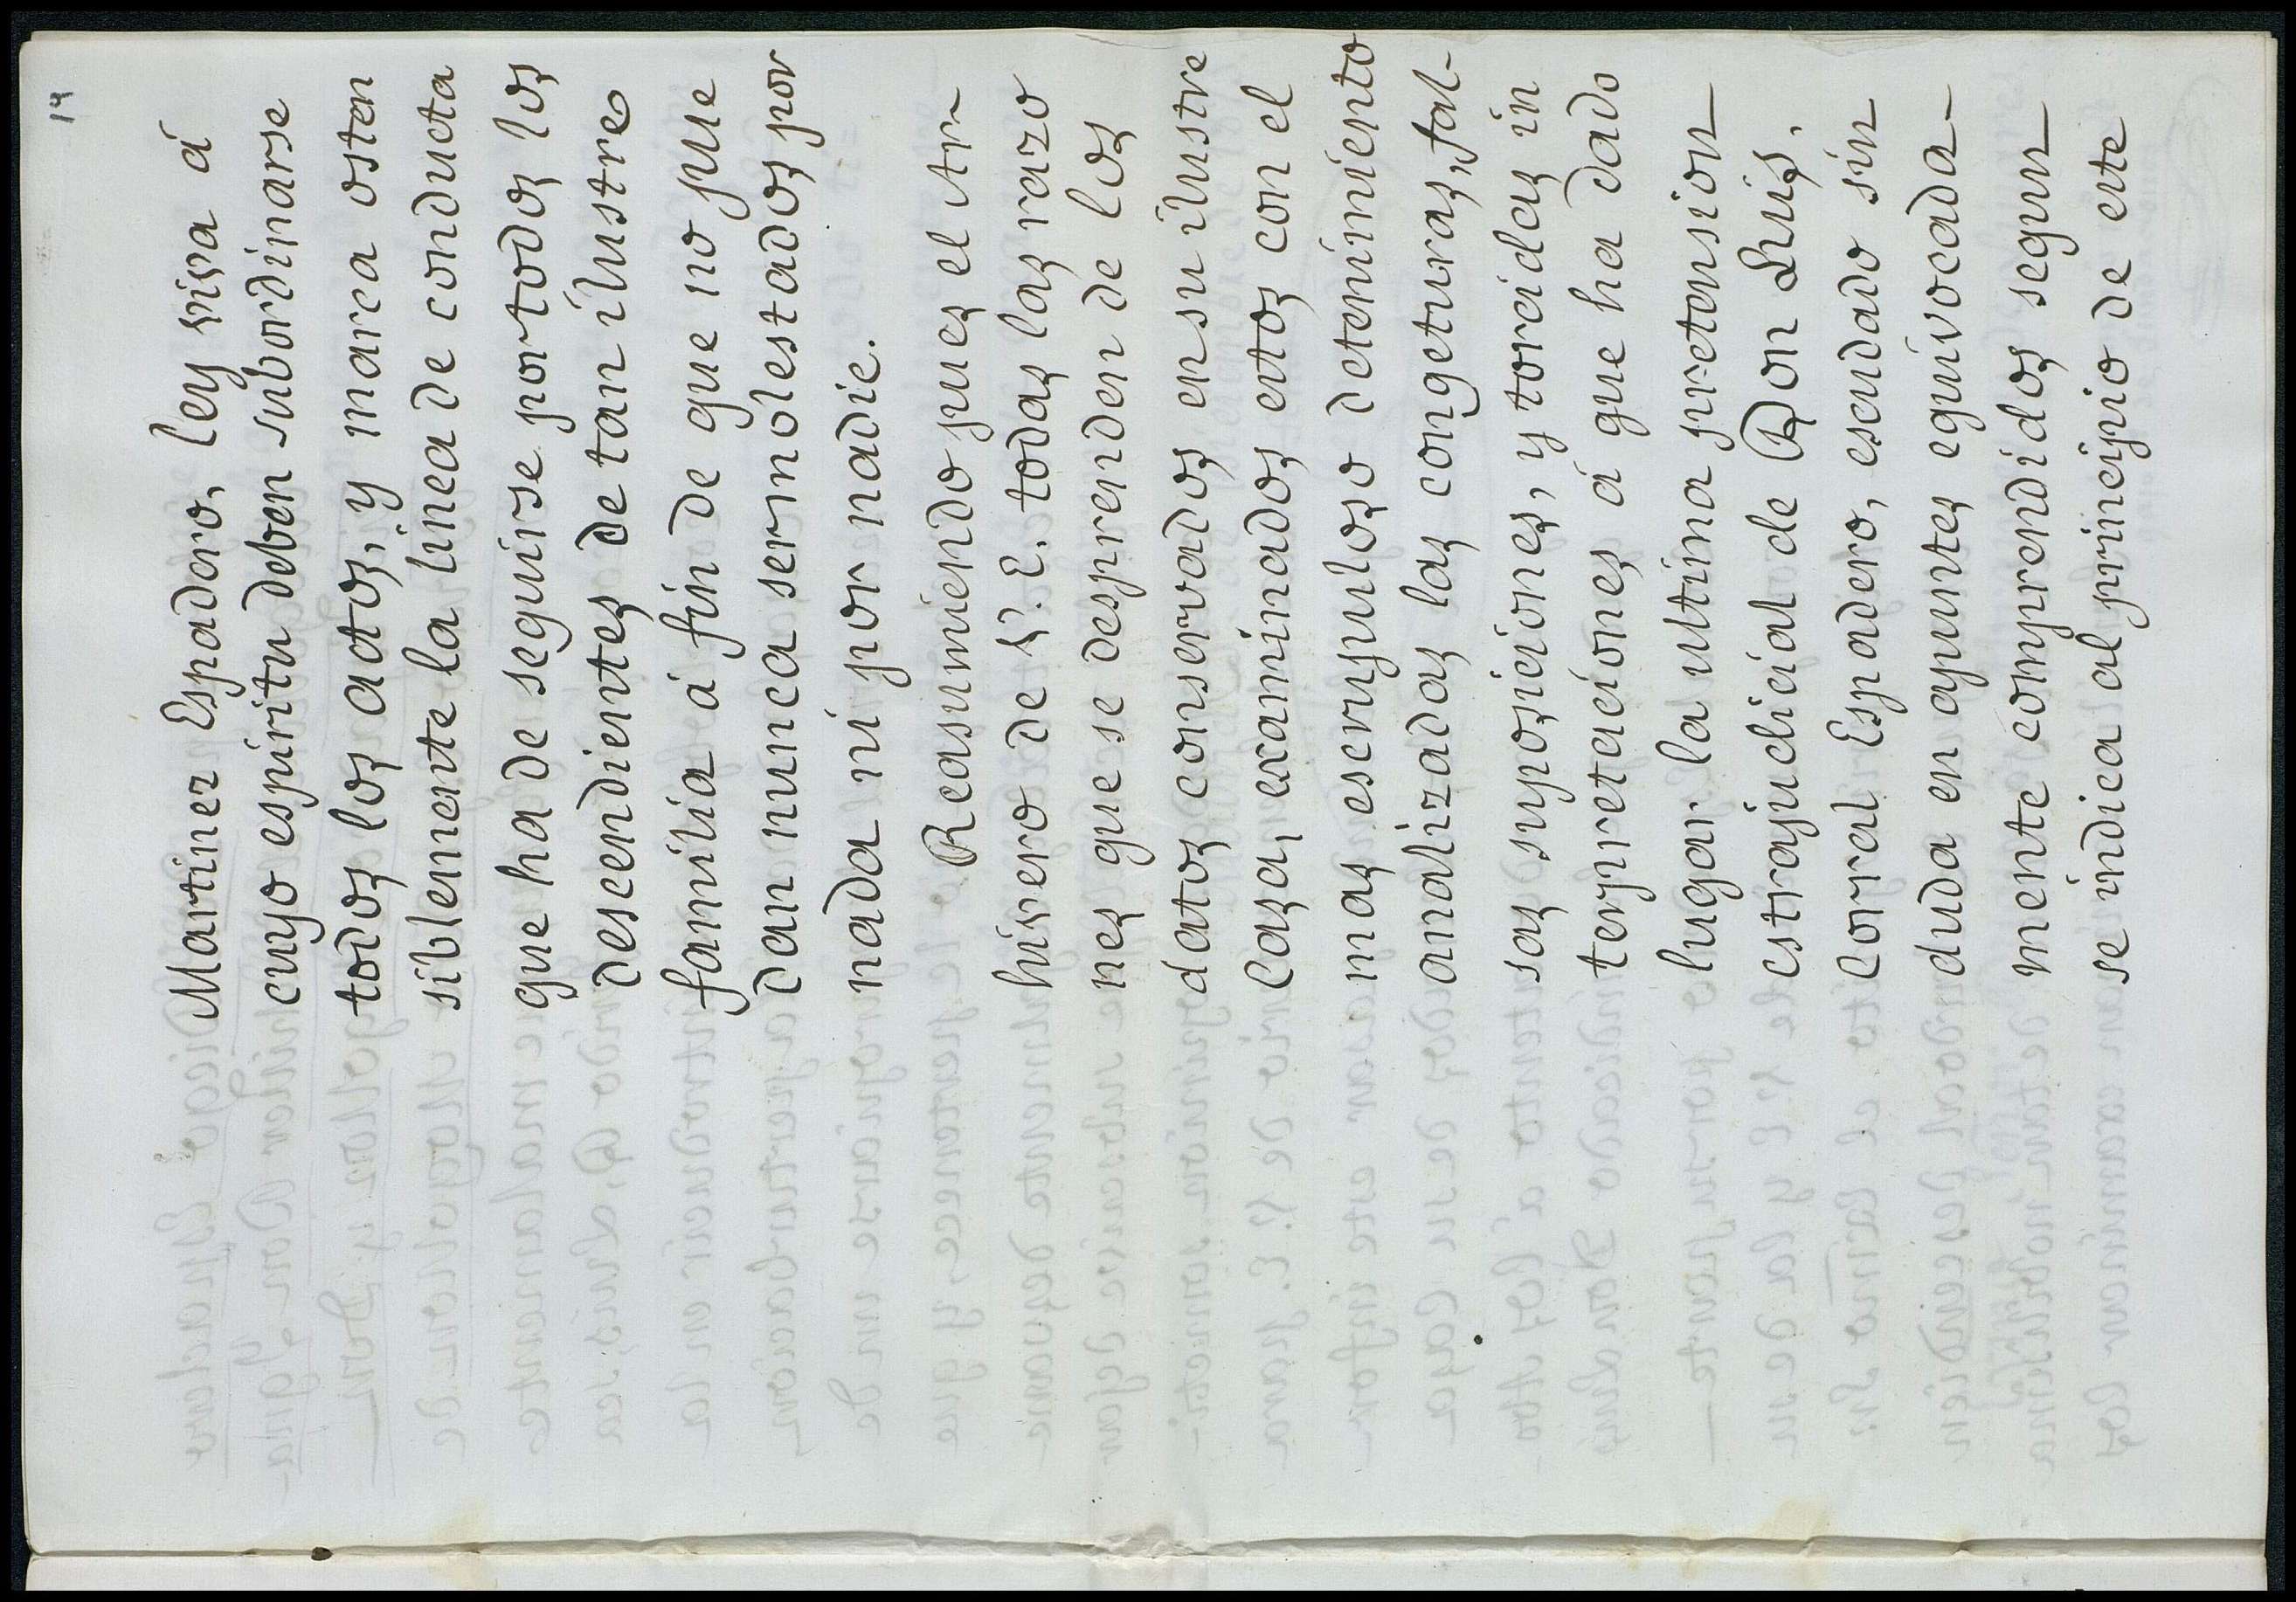 14
Martinez Espadero, ley viva á
cuyo espiritu deben subordinarse
todos los actos, y marca osten
siblemente la linea de conducta
que ha de seguirse por todos los
descendientes de tan ilustre
familia á fin de que no pue
dan nunca ser molestados por
nada ni por nadie.
Reasumiendo pues el Ar-
hivero de V. E. todas las razo
nes que se desprenden de los
datos conservados en su ilustre
Casa, examinados estos con el
mas escrupuloso detenimiento
analizadas las congeturas, fal-
sas suposiciones, y torcidas in
terpretaciones á que ha dado
lugar la ultima pretension
estrajudicial de Don Luis,
Corral Espadero, escudado sin
duda en apuntes equivocada-
mente comprendidos segun
se indica al principio de este